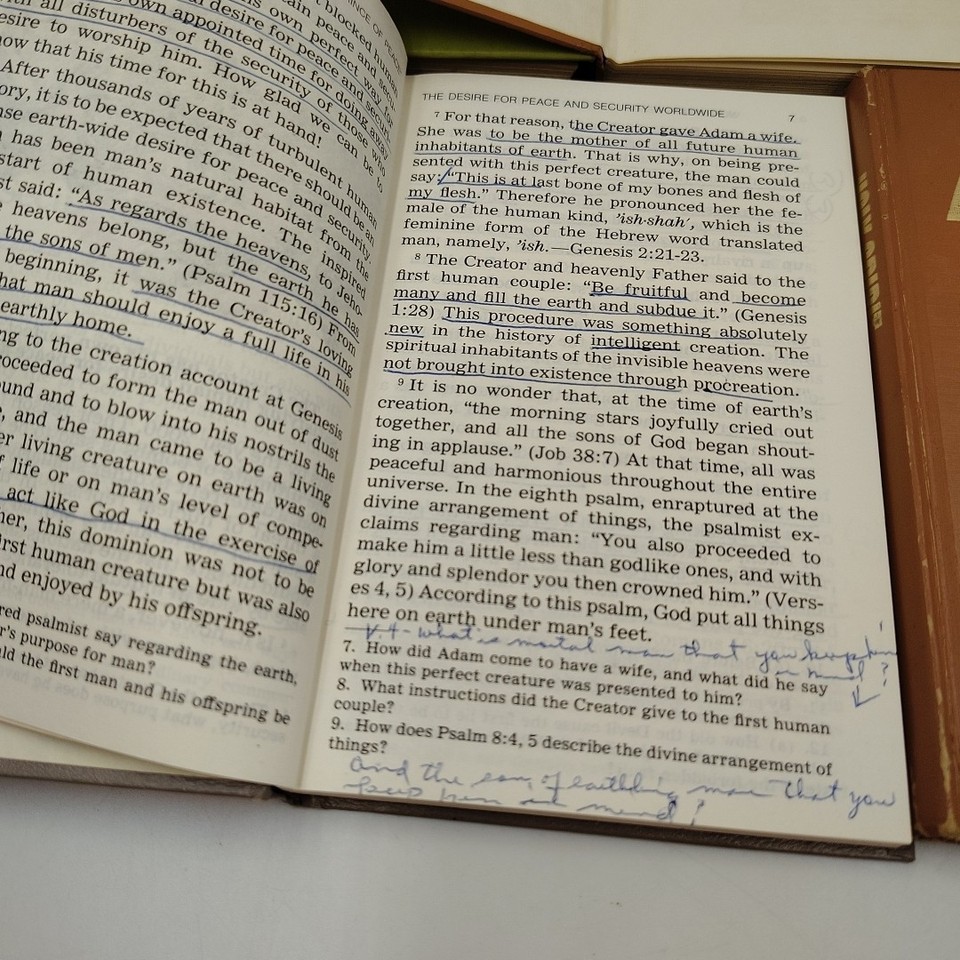 INCE OF PEACE
t blocked human
tain peace and secu-
his own perfect way for
al desire for peace and security.
own appointed time for doing away
ith all disturbers of the security of those who
esire to worship him. How glad we can be to
now that his time for this is at hand!
After thousands of years of turbulent human
ory, it is to be expected that there should be an
nse earth-wide desire for peace and security.
has been man's natural habitat from the
start of human existence. The inspired
st said: "As regards the heavens, to Jeho-
heavens belong, but the earth he has
the sons of men." (Psalm 115:16) From
beginning, it was the Creator's loving
hat man should enjoy a full life in his
earthly home.
ng to the creation account at Genesis
roceeded to form the man out of dust
ound and to blow into his nostrils the
, and the man came to be a living
er living creature on earth was on
f life or on man's level of compe-
act like God in the exercise of
her, this dominion was not to be
irst human creature but was also
nd enjoyed by his offspring.
red psalmist say regarding the earth,
r's purpose for man?
ld the first man and his offspring be
THE DESIRE FOR PEACE AND SECURITY WORLDWIDE 7
7 For that reason, the Creator gave Adam a wife.
She was to be the mother of all future human
inhabitants of earth. That is why, on being pre-
sented with this perfect creature, the man could
say: "This is at last bone of my bones and flesh of
my flesh." Therefore he pronounced her the fe-
male of the human kind, 'ish·shah', which is the
feminine form of the Hebrew word translated
man, namely, 'ish.—Genesis 2:21-23.
8 The Creator and heavenly Father said to the
first human couple: "Be fruitful and become
many and fill the earth and subdue it." (Genesis
1:28) This procedure was something absolutely
new in the history of intelligent creation. The
spiritual inhabitants of the invisible heavens were
not brought into existence through procreation.
9 It is no wonder that, at the time of earth's
creation, "the morning stars joyfully cried out
together, and all the sons of God began shout-
ing in applause." (Job 38:7) At that time, all was
peaceful and harmonious throughout the entire
universe. In the eighth psalm, enraptured at the
divine arrangement of things, the psalmist ex-
claims regarding man: "You also proceeded to
make him a little less than godlike ones, and with
glory and splendor you then crowned him." (Vers-
es 4, 5) According to this psalm, God put all things
here on earth under man's feet.
V 4 - what is mortal man that you keep him
in mind?
7. How did Adam come to have a wife, and what did he say
when this perfect creature was presented to him?
8. What instructions did the Creator give to the first human
couple?
9. How does Psalm 8:4, 5 describe the divine arrangement of
things?
and the son of earthling man that you
keep him in mind?